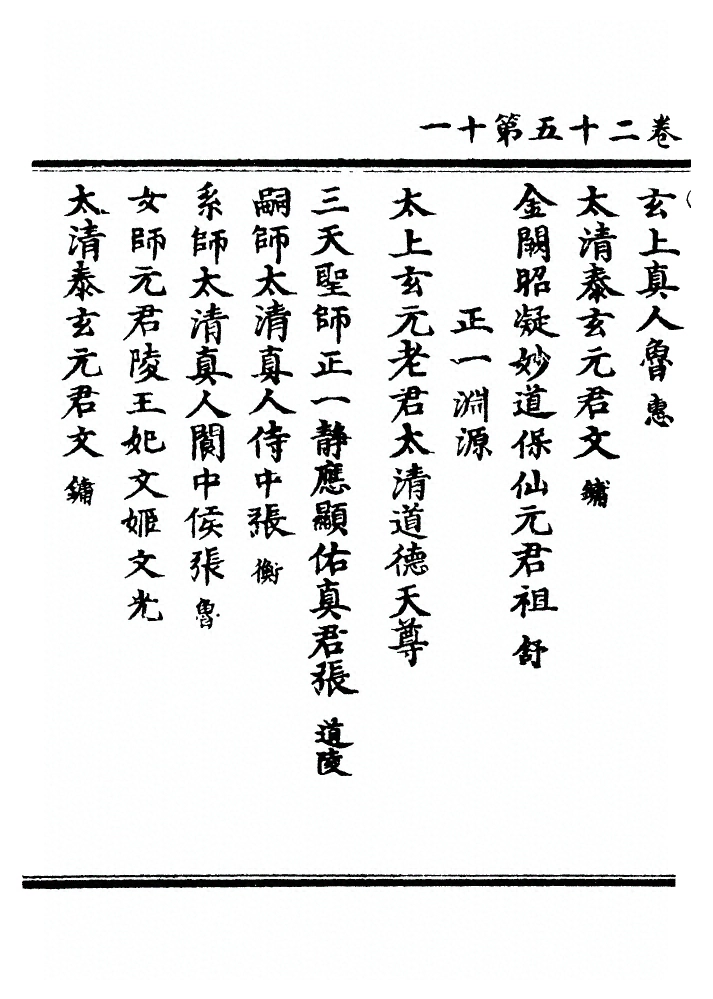 卷二十五第十一
玄上真人魯惠
太清泰玄元君文鏽
金闕昭凝妙道保仙元君祖舒
正一淵源
太上玄元老君太清道德天尊
三天聖師正一靜應顯佑真君張道陵
嗣師太清真人侍中張衡
系師太清真人閬中侯張魯
女師元君陵王妃文姬文光
太清泰玄元君文鏞